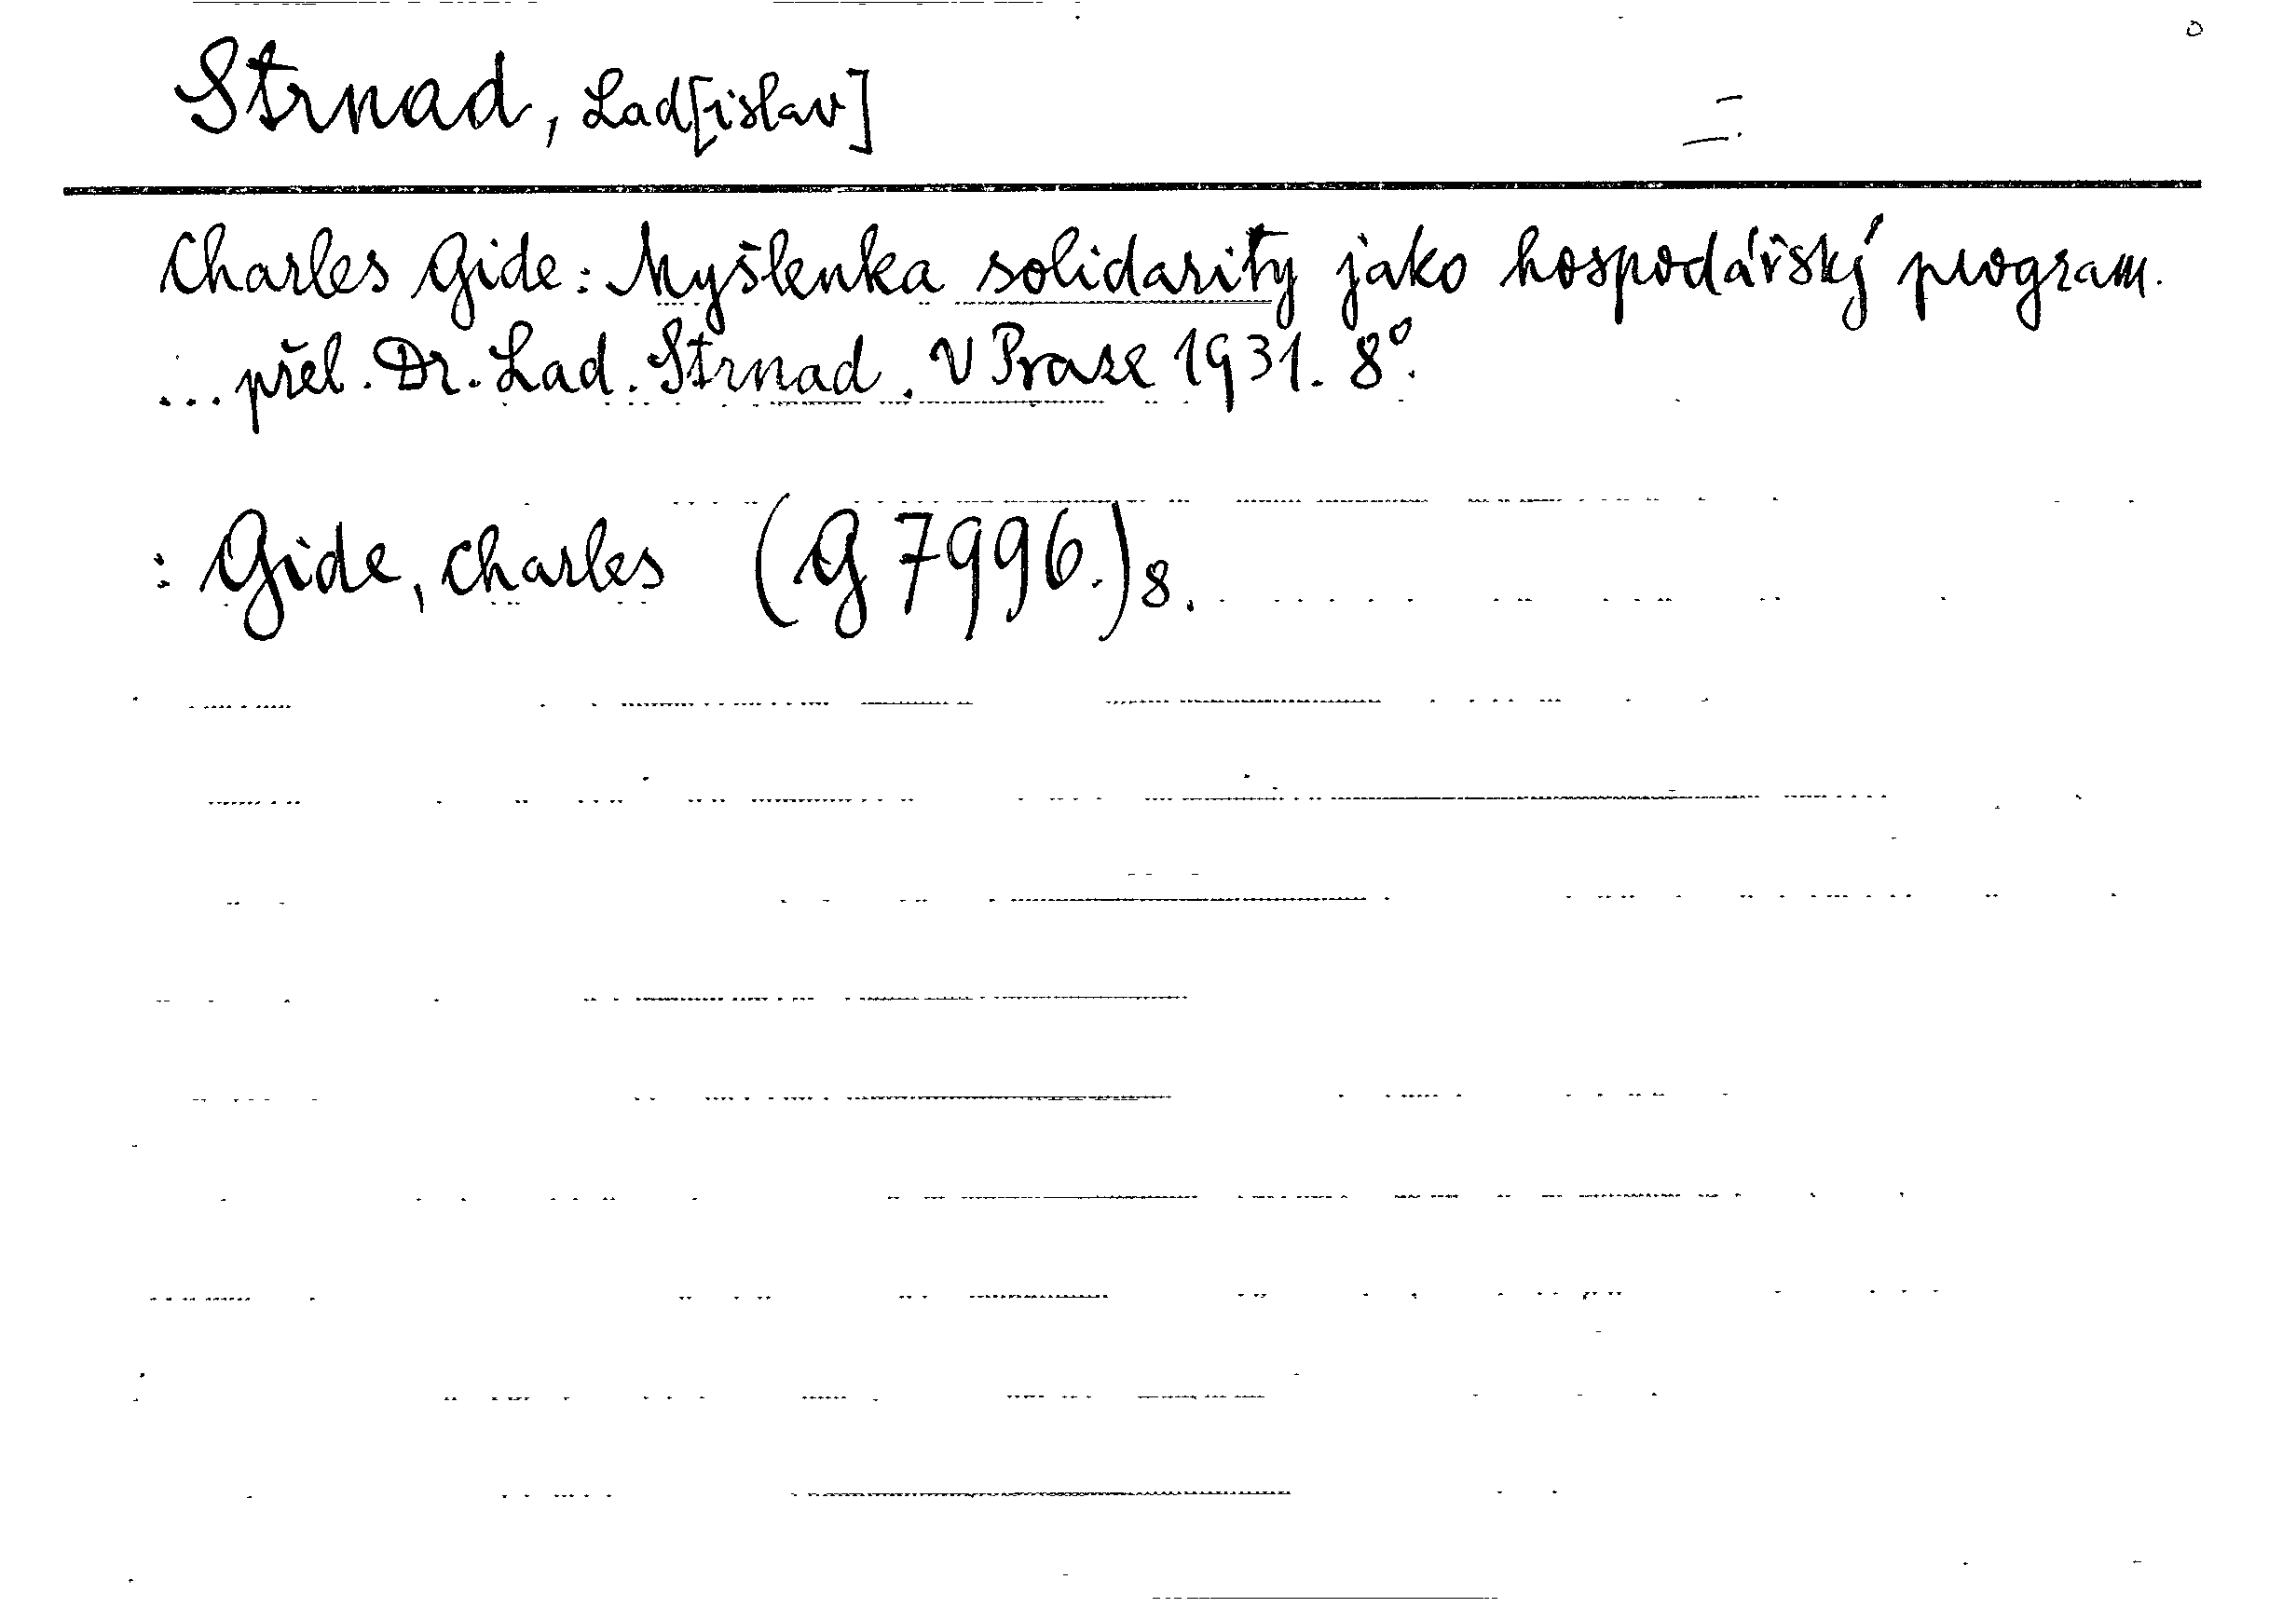 Strnad, Lad[islav]
Charles Gide: Myšlenka solidarity jako hospodářský program.
... přel. Dr. Lad. Strnad. V Praze 1931. 8°.
: Gide, Charles (G 7996.) 8.